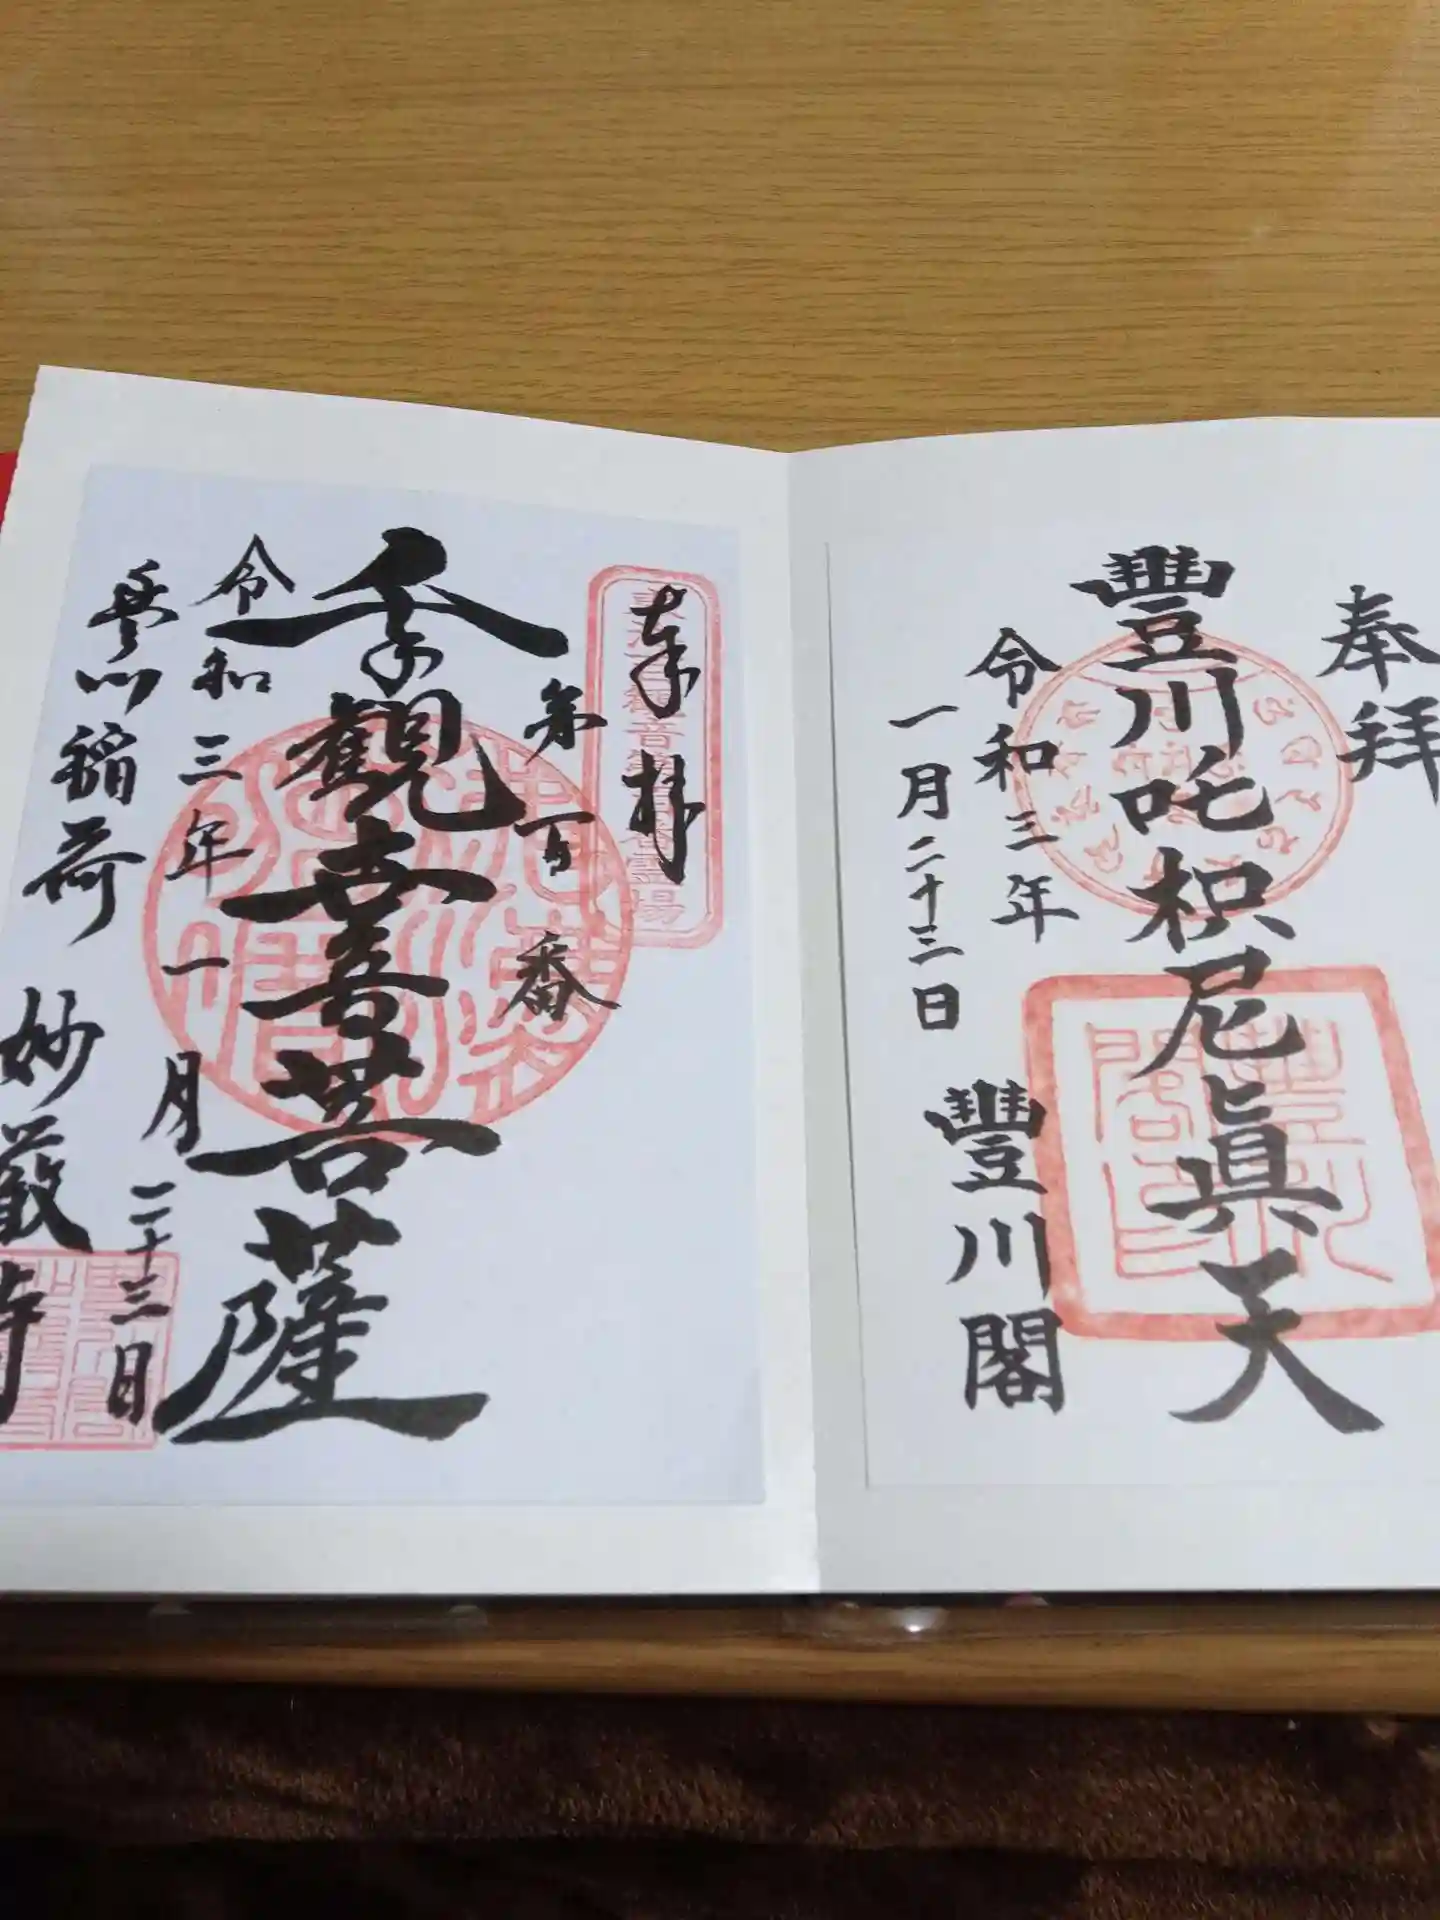 奉拝
豐川吒枳尼眞天
令和三年
一月二十三日
豐川閣
奉拝
第百番
千手觀世音菩薩
令和三年一月二十三日
豊川稲荷
妙厳寺